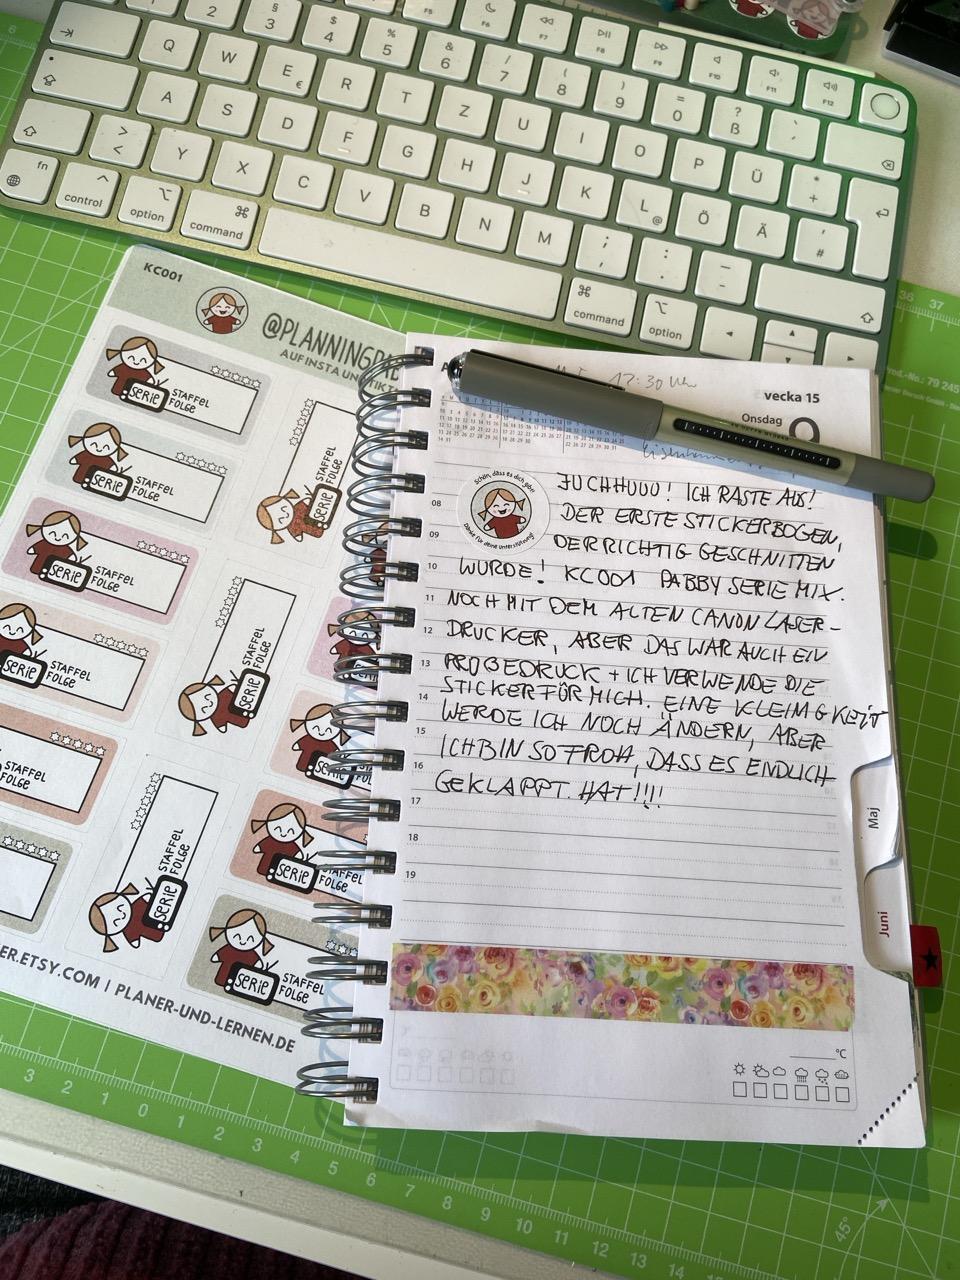 F5
F6
F7
F8
F9
F10
F11
F12
2
§
3
$
4
%
5
&
6
/
7
(
8
)
9
=
0
?
ß
`
´
Q
W
E
€
R
T
Z
U
I
O
P
Ü
*
+
A
S
D
F
G
H
J
K
L
@
Ö
Ä
'
#
>
<
Y
X
C
V
B
N
M
;
,
:
.
_
-
fn
control
option
command
command
option
KC001
@PLANNINGPI
AUF INSTA UN
SERIE
STAFFEL
FOLGE
SERIE
STAFFEL
FOLGE
SERIE
STAFFEL
FOLGE
SERIE
STAFFEL
FOLGE
STAFFEL
FOLGE
SERIE
STAFFEL
FOLGE
SERIE
STAFFEL
FOLGE
SERIE
STAFFEL
FOLGE
SERIE
SERIE
SERIE
STAFFEL
FOLGE
SERIE
STAFFEL
FOLGE
ER.ETSY.COM | PLANER-UND-LERNEN.DE
17:30 Uhr
vecka 15
Onsdag
9
Schön, dass es dich gibt!
Danke für deine Unterstützung!
JUCHHUUU! ICH RASTE AUS!
08 DER ERSTE STICKERBOGEN,
09 DER RICHTIG GESCHNITTEN
10 WURDE! KC001 PABBY SERIE MIX.
11 NOCH MIT DEM ALTEN CANON LASER-
12 DRUCKER, ABER DAS WAR AUCH EIN
13 PROBEDRUCK + ICH VERWENDE DIE
14 STICKER FÜR MICH. EINE KLEINIGKEIT
15 WERDE ICH NOCH ÄNDERN, ABER
16 ICH BIN SO FROH, DASS ES ENDLICH
17 GEKLAPPT HAT!!!!
18
19
Maj
Juni
°C
36 37
Prod.-No.: 79 245
3 2 1 0 1 2 3 4 5 6 7 8 9 10 11 12 13 14
45°